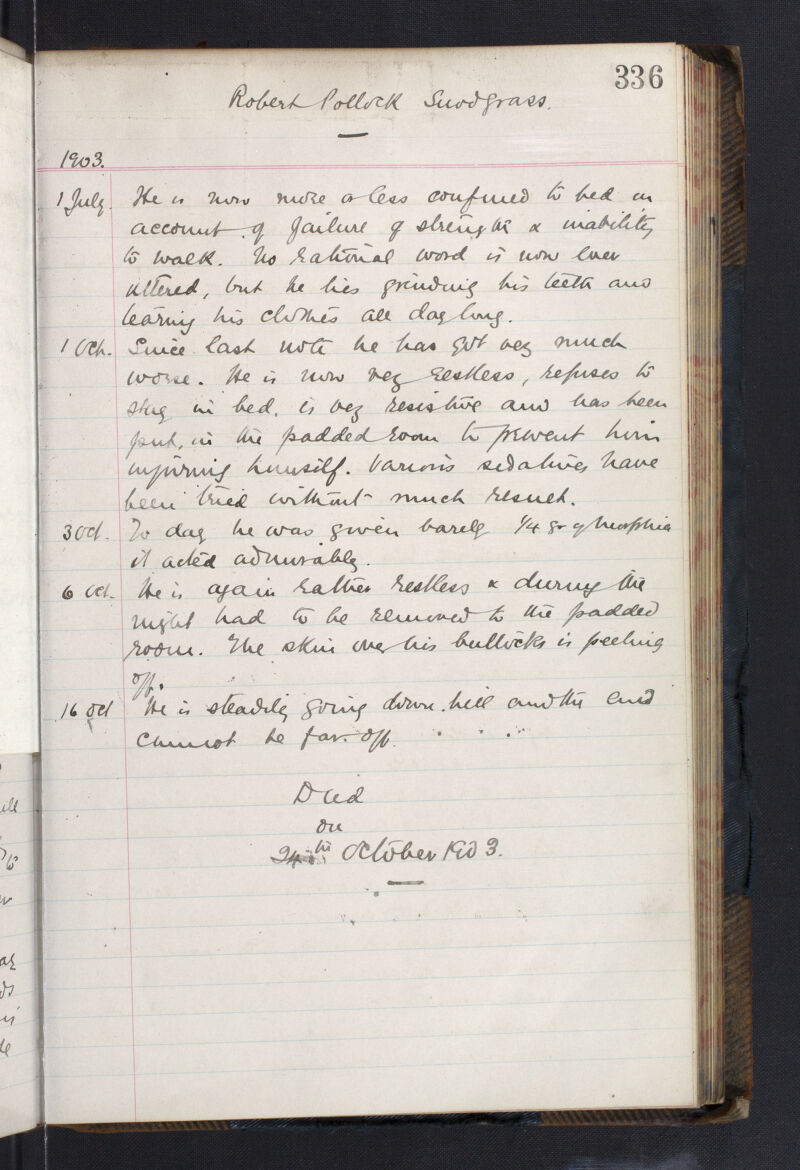 336
Robert Pollock Snodgrass.
1903.
1 July. He is now more or less confined to bed on
account of failure of strength & inability
to walk. No rational word is now ever
uttered, but he lies grinding his teeth and
tearing his clothes all day long.
1 Oct. Since last note he has got very much
worse. He is now very restless, refuses to
stay in bed, is very resistive and has been
put in the padded room to prevent him
injuring himself. Various sedatives have
been tried without much result.
3 Oct. To day he was given barely 1/4 gr of morphia
it acted admirably.
6 Oct. He is again rather restless & during the
night had to be removed to the padded
room. The skin over his buttocks is peeling
off.
16 Oct He is steadily going down hill and the end
cannot be far off.
Died
on
24th October 1903.